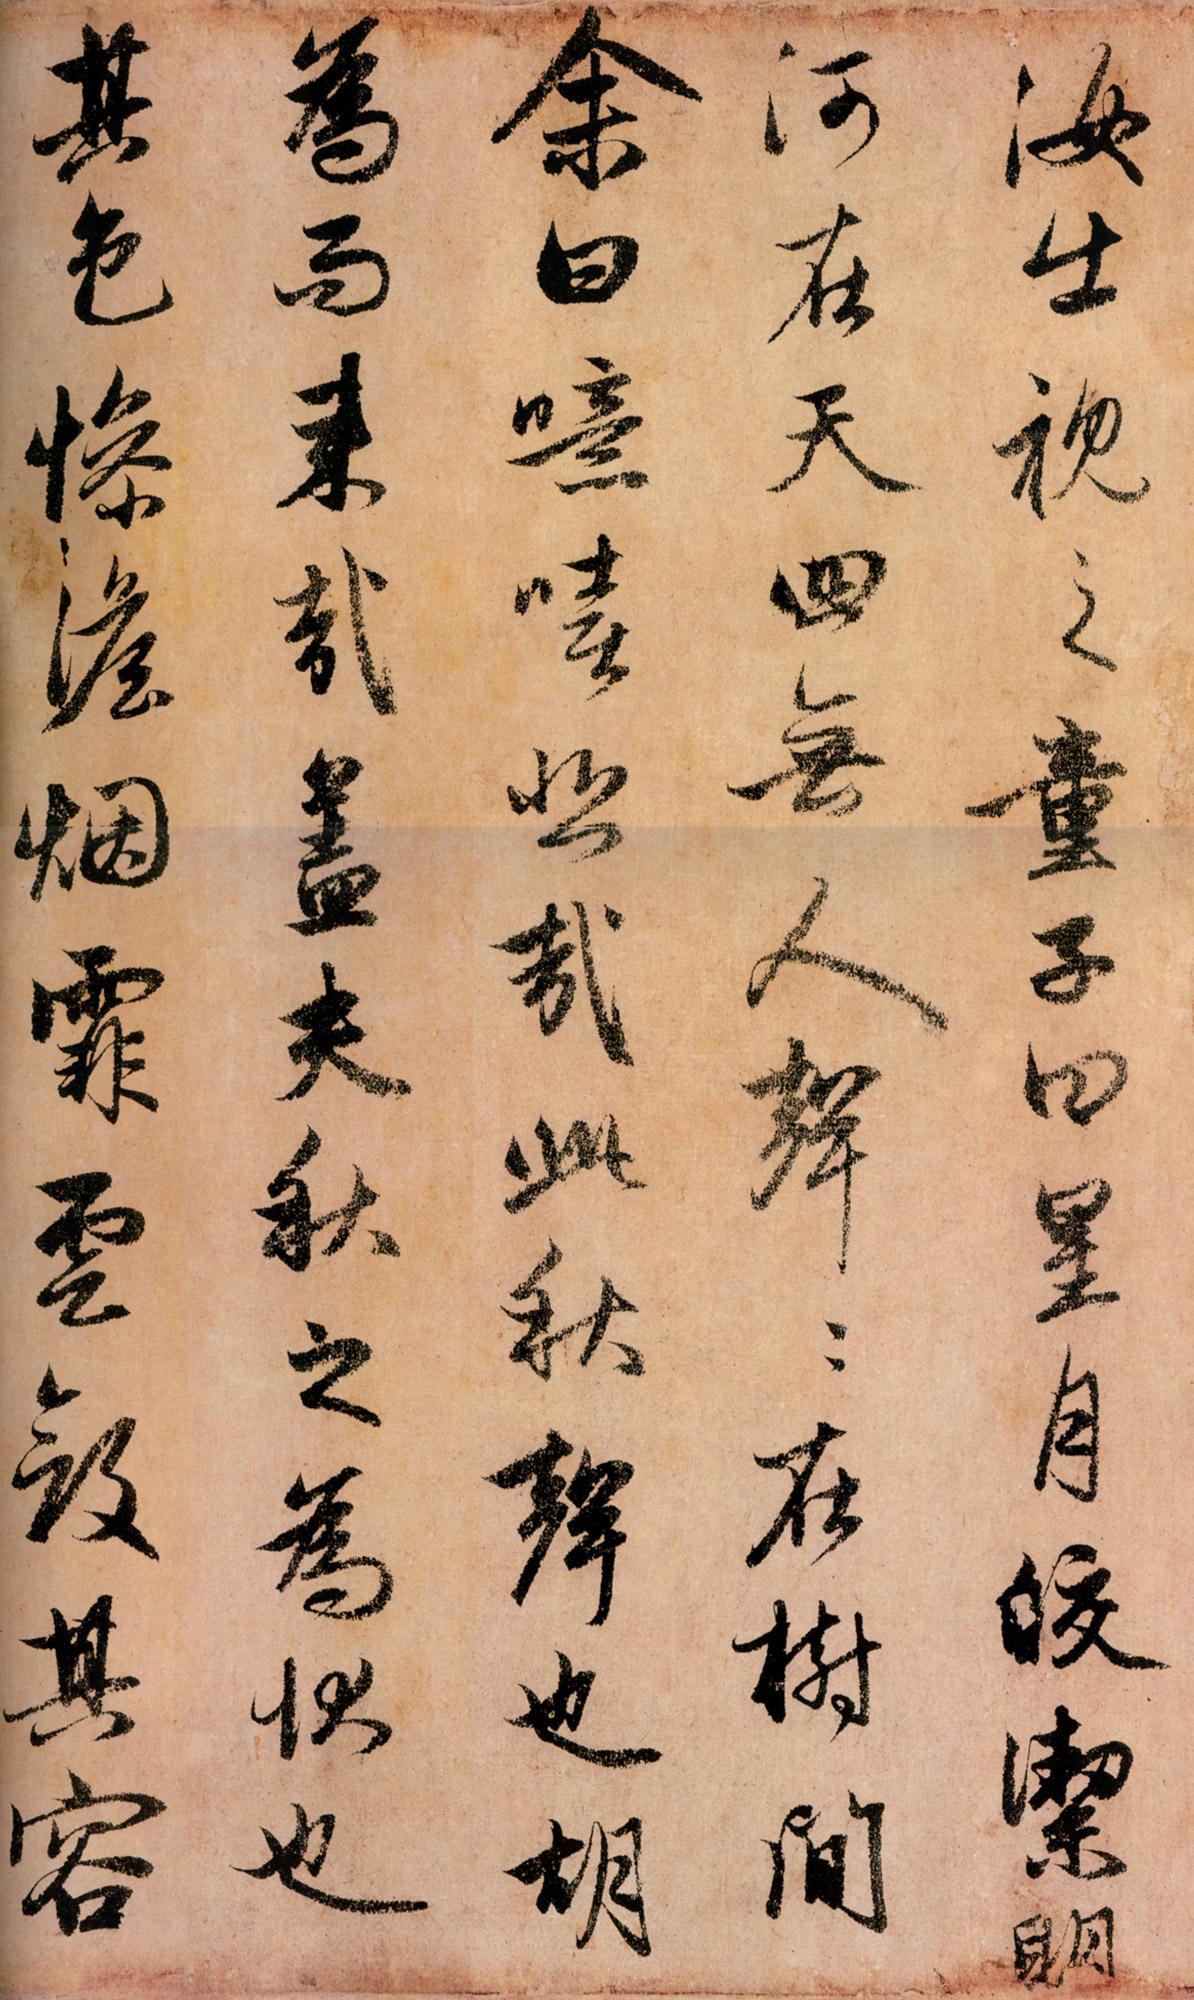 汝出視之童子曰星月皎潔明
河在天四無人聲〻在樹間
余曰噫嘻悲哉此秋聲也胡
為而來哉蓋夫秋之為狀也
其色慘澹烟霏雲斂其容